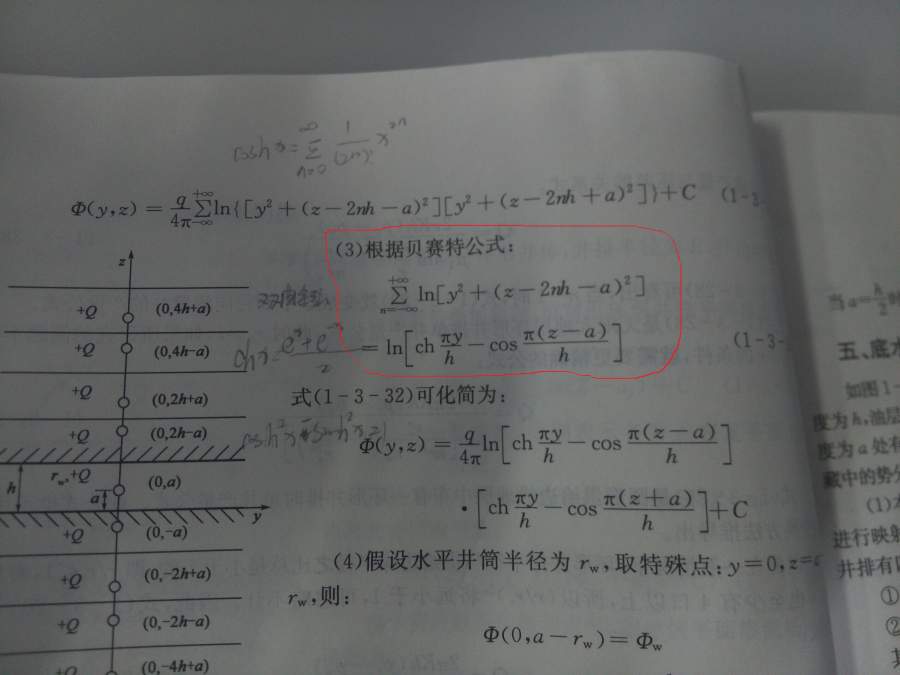 cosh x = ∞ Σ n=0 1/(2n)! x^2n
Φ(y,z) = q/4π +∞ Σ −∞ ln{[y² + (z − 2nh − a)²][y² + (z − 2nh + a)²]} + C (1-3-
(3)根据贝赛特公式:
+∞ Σ n=−∞ ln[y² + (z − 2nh − a)²]
= ln[ch πy/h − cos π(z − a)/h] (1-3-
式(1-3-32)可化简为:
Φ(y,z) = q/4π ln[ch πy/h − cos π(z − a)/h]
·[ch πy/h − cos π(z + a)/h] + C
(4)假设水平井筒半径为 rw,取特殊点:y=0,z=
rw,则:
Φ(0,a − rw) = Φw
z
+Q (0,4h+a)
+Q (0,4h-a)
+Q (0,2h+a)
+Q (0,2h-a)
h rw +Q (0,a)
a
y
+Q (0,-a)
+Q (0,-2h+a)
+Q (0,-2h-a)
+Q (0,-4h+a)
当 a=h/2时
五、底水
如图1-
度为h,油层
度为a处有
藏中的势分
(1)
进行映射
井排有
①
②